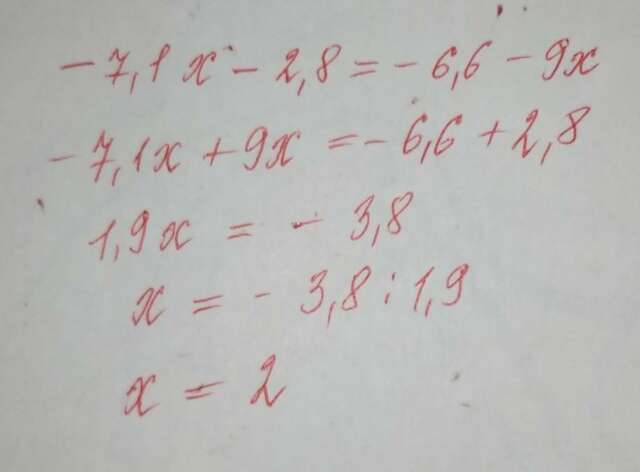 -7,1x - 2,8 = -6,6 - 9x
-7,1x + 9x = -6,6 + 2,8
1,9x = - 3,8
x = - 3,8 : 1,9
x = 2